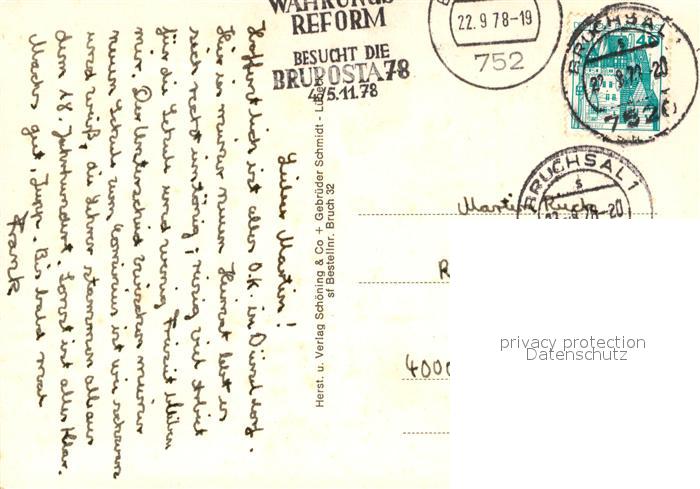 WÄHRUNGS
REFORM
BESUCHT DIE
BRUPOSTA 78
4./5.11.78
22.9.78-19
752
BRUCHSAL 1
s
7520
BRUCHSAL 1
s
Lieber Martin!
Hoffentlich ist alles O.K. in Düsseldorf.
Hier in meiner neuen Heimat lebt es
sich recht eintönig; riesig viel Arbeit
für die Schule und wenig Freizeit blüben
mir. Der Unterschied zwischen meiner
neuen Schule zum Comenius ist wie schwarz
und weiß, die Lehrer stammen all aus
dem 18. Jahrhundert. Sonst ist alles klar.
Machs gut, Jupp. Bis bald mal
Frank
Herst. u. Verlag Schöning & Co + Gebrüder Schmidt - Lübeck
sf Bestellnr. Bruch 32
Martin
R
4000
privacy protection
Datenschutz